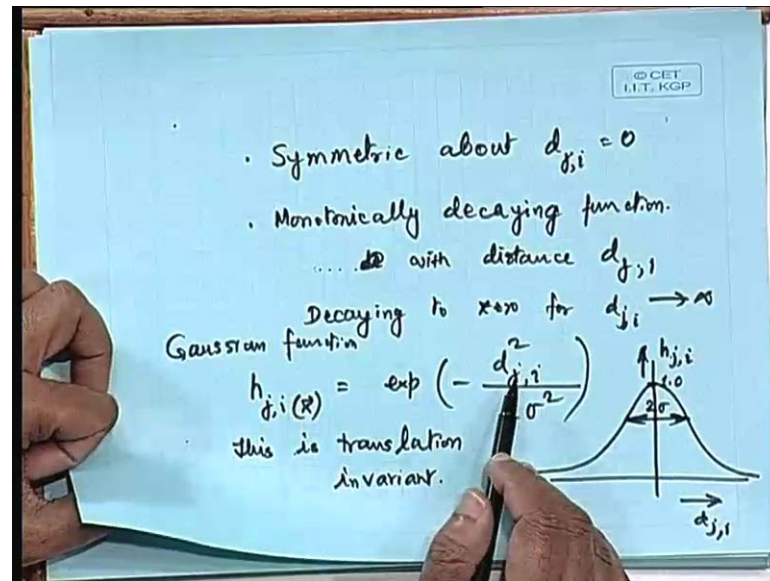 © CET
I.I.T. KGP
· Symmetric about d_{j,i} = 0
· Monotonically decaying function.
..... with distance d_{j,i}
Decaying to zero for d_{j,i} → ∞
Gaussian function
h_{j,i(x)} = exp ( - d²_{j,i} / σ² )
this is translation
invariant.
h_{j,i}
1.0
2σ
d_{j,i}